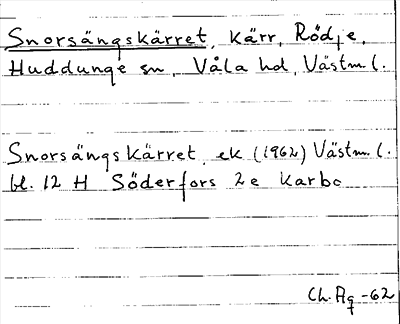 Snorsängskärret, kärr, Rödje,
Huddunge sn, Våla hd, Västm l.
Snorsängskärret ek (1962) Västm l.
bl. 12 H Söderfors 2e Karbo
Ch. Ag -62